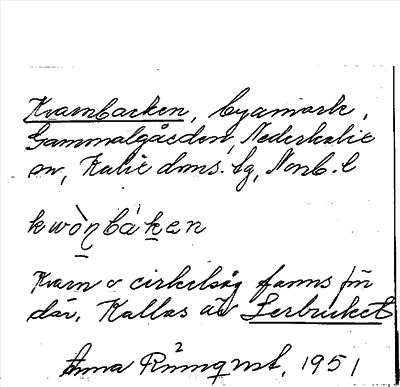 Kvarnbacken, byamark,
Gammalgården, Nederkalix
sn, Kalix doms. tg, Norrb. l
kwòṇbàken
Kvarn o cirkelsåg fanns för
där. Kallas äv Lerbruket
Anna Rönnqvist, 1951